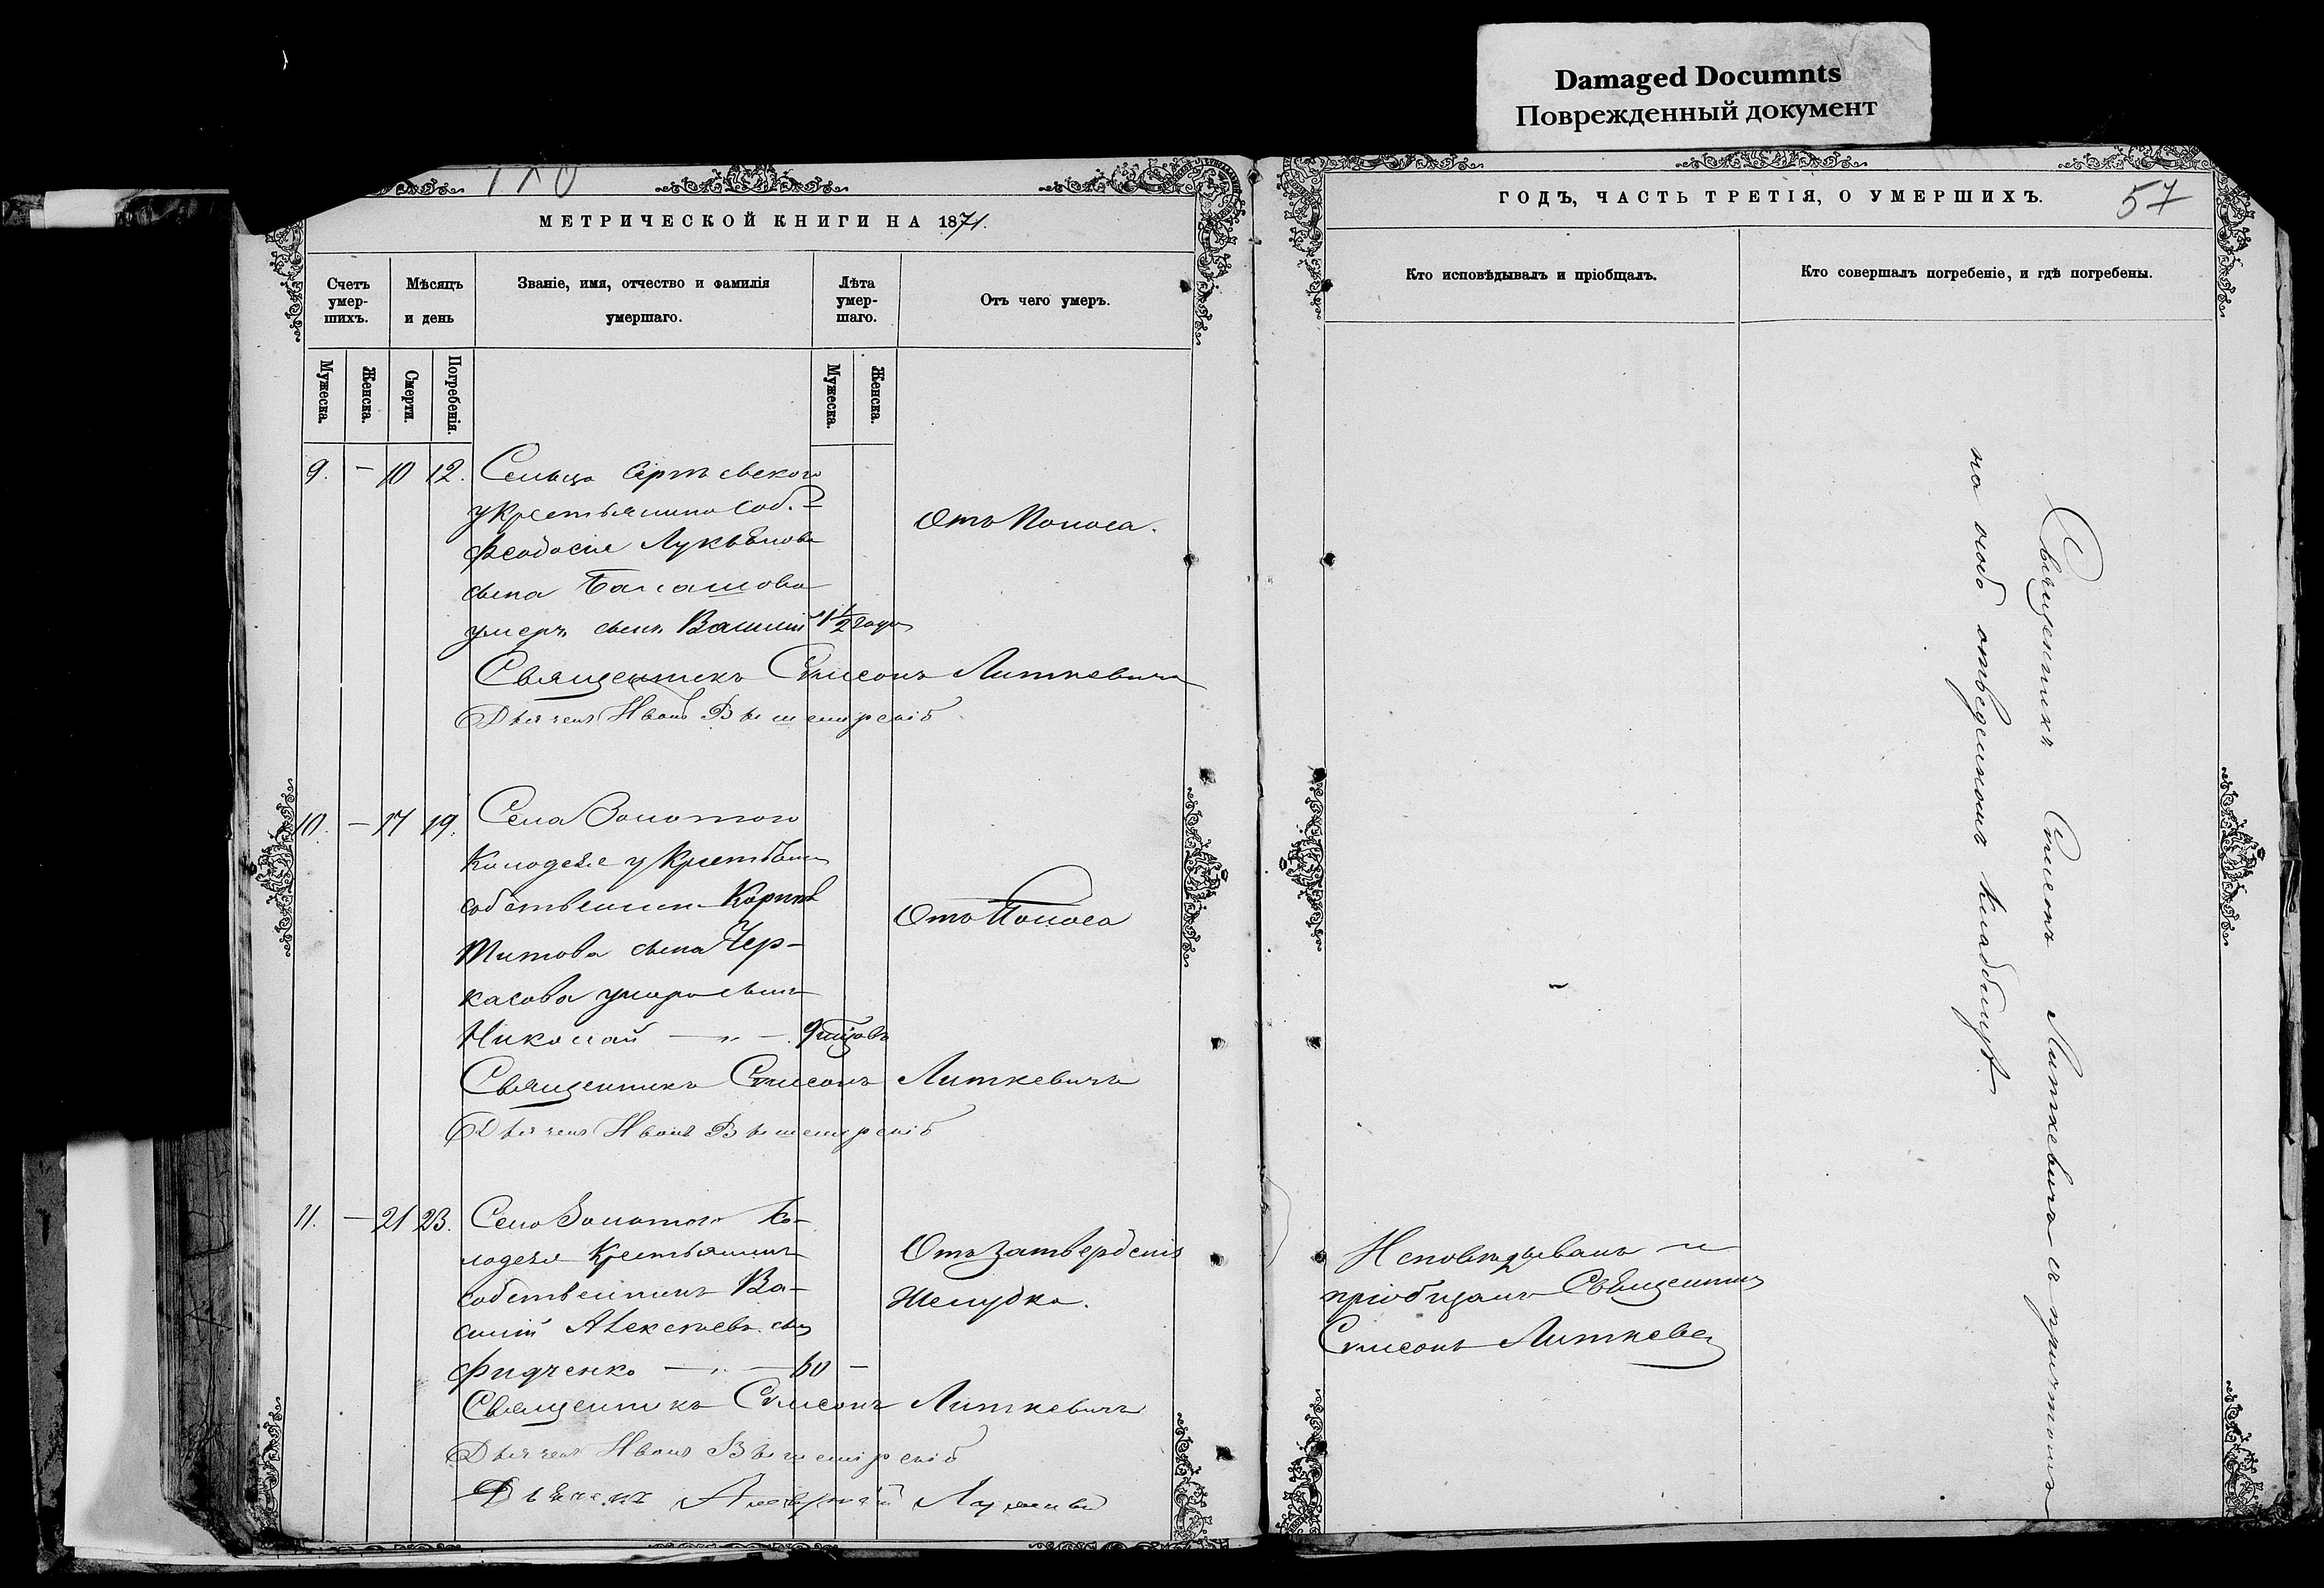 Damaged Documnts
Поврежденный документ
МЕТРИЧЕСКОЙ КНИГИ НА 1871.
ГОДЪ, ЧАСТЬ ТРЕТІЯ, О УМЕРШИХЪ.
57
Счетъ умер-шихъ.
Мѣсяцъ и день
Званіе, имя, отчество и фамилія умершаго.
Лѣта умер-шаго.
Отъ чего умеръ.
Кто исповѣдывалъ и пріобщалъ.
Кто совершалъ погребеніе, и гдѣ погребены.
Мужеска.
Женска.
Смерти.
Погребенія.
Мужеска.
Женска.
9. — 10 12. Сельца
у Крестьянина Соб.
Феодосія Лукьянова
сына Балашова
умеръ сынъ Василій 1 1/2 года
Отъ Поноса.
Священникъ Симеонъ Литкевичъ
Дьячекъ Иванъ
10. — 17 19. Села Золотого
Колодезя у Крестьян
собственни Корнил
Титова сына Чер-
касова умеръ сынъ
Николай — „ — 9 мѣсяцовъ
Отъ Поноса
Священникъ Симеонъ Литкевичъ
Дьячекъ Иванъ
11. — 21 23. Села Золотого Ко-
лодезя Крестьянинъ
собственникъ Ва-
силій Алексѣевъ сын
Фидченко — „ — 60 —
Отъ затвердѣнія
Желудка.
Священникъ Симеонъ Литкевичъ
Дьячекъ Иванъ
Дьячекъ
Исповѣдывалъ и
пріобщалъ Священник
Симеонъ Литкевич
Священникъ Симеонъ Литкевичъ съ причтомъ
на отведенномъ кладбищѣ.